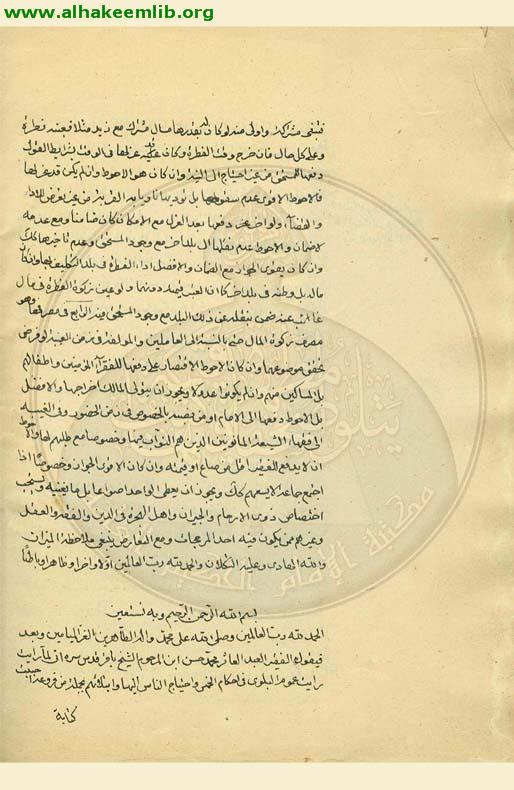 www.alhakeemlib.org
تنتفى شركة واولى منه لو كان له بقدرها مال مشترك مع زيد مثلا فعينه فطرة
وعلى كل حال فان خرج وقت الفطرة وكان قد عزلها فى الوقت بشرايط العزل
دفعها لمستحق من غير احتياج الى النية وان كان هو الاحوط وان لم يكن قد عزلها
فالاحوط الاقوى عدم سقوطها بل يؤديها ناويا بها القربة من غير تعرض للاداء
والقضاء ولو اخر دفعها بعد العزل مع الامكان كان ضامنا ومع عدمه
لا ضمان والاحوط عدم نقلها الى بلد اخر مع وجود المستحق وعدم تاخيرها كك
وان كان يقوى الجواز مع الضمان والافضل اداء الفطرة فى بلد التكليف بها وان كان
ماله بل وطنه فى بلد اخر كما ان العبرة ببلده دونها ولو عين زكوة الفطرة فى مال
غائب عنه ضمن بنقله عن ذلك البلد مع وجود المستحق فيه الرابع فى مصرفها وهو
مصرف زكوة المال حتى بالنسبة الى العاملين والمؤلفة فى زمن الغيبة لو فرض
تحقق موضوعها وان كان الاحوط الاقتصار على دفعها للفقراء المؤمنين واطفالهم
بل المساكين منهم وان لم يكونوا عدولا ويجوز ان يتولى المالك اخراجها والافضل
بل الاحوط دفعها الى الامام او من نصبه بالخصوص فى زمن الحضور وفى الغيبة
الى فقهاء الشيعة المأمونين الذين هم النواب فيها وخصوصا مع طلبهم لها والاحوط
ان لا يدفع للفقير اقل من صاع او قيمته وان كان الاقوى الجواز وخصوصا اذا
اجتمع جماعة لا تسعهم كك ويجوز ان يعطى الواحد اصواعا بل ما يغنيه ويستحب
اختصاص ذوى الارحام والجيران واهل الهجرة فى الدين والفقه والعقل
وغيرهم ممن يكون فيه احد المرجحات ومع التعارض ينبغى ملاحظة الميزان
والله الهادى وعليه التكلان والحمد لله رب العالمين اولا واخرا وظاهرا وباطنا
بسم الله الرحمن الرحيم وبه نستعين
الحمد لله رب العالمين وصلى الله على محمد واله الطاهرين الغر الميامين وبعد
فيقول الفقير العبد العاثر محمد حسن ابن المرحوم الشيخ باقر قدس سره انى لما رايت
رايت عموم البلوى فى احكام الخمس واحتياج الناس اليها وابتلائهم بجملة من فروعه احببت
كتابة